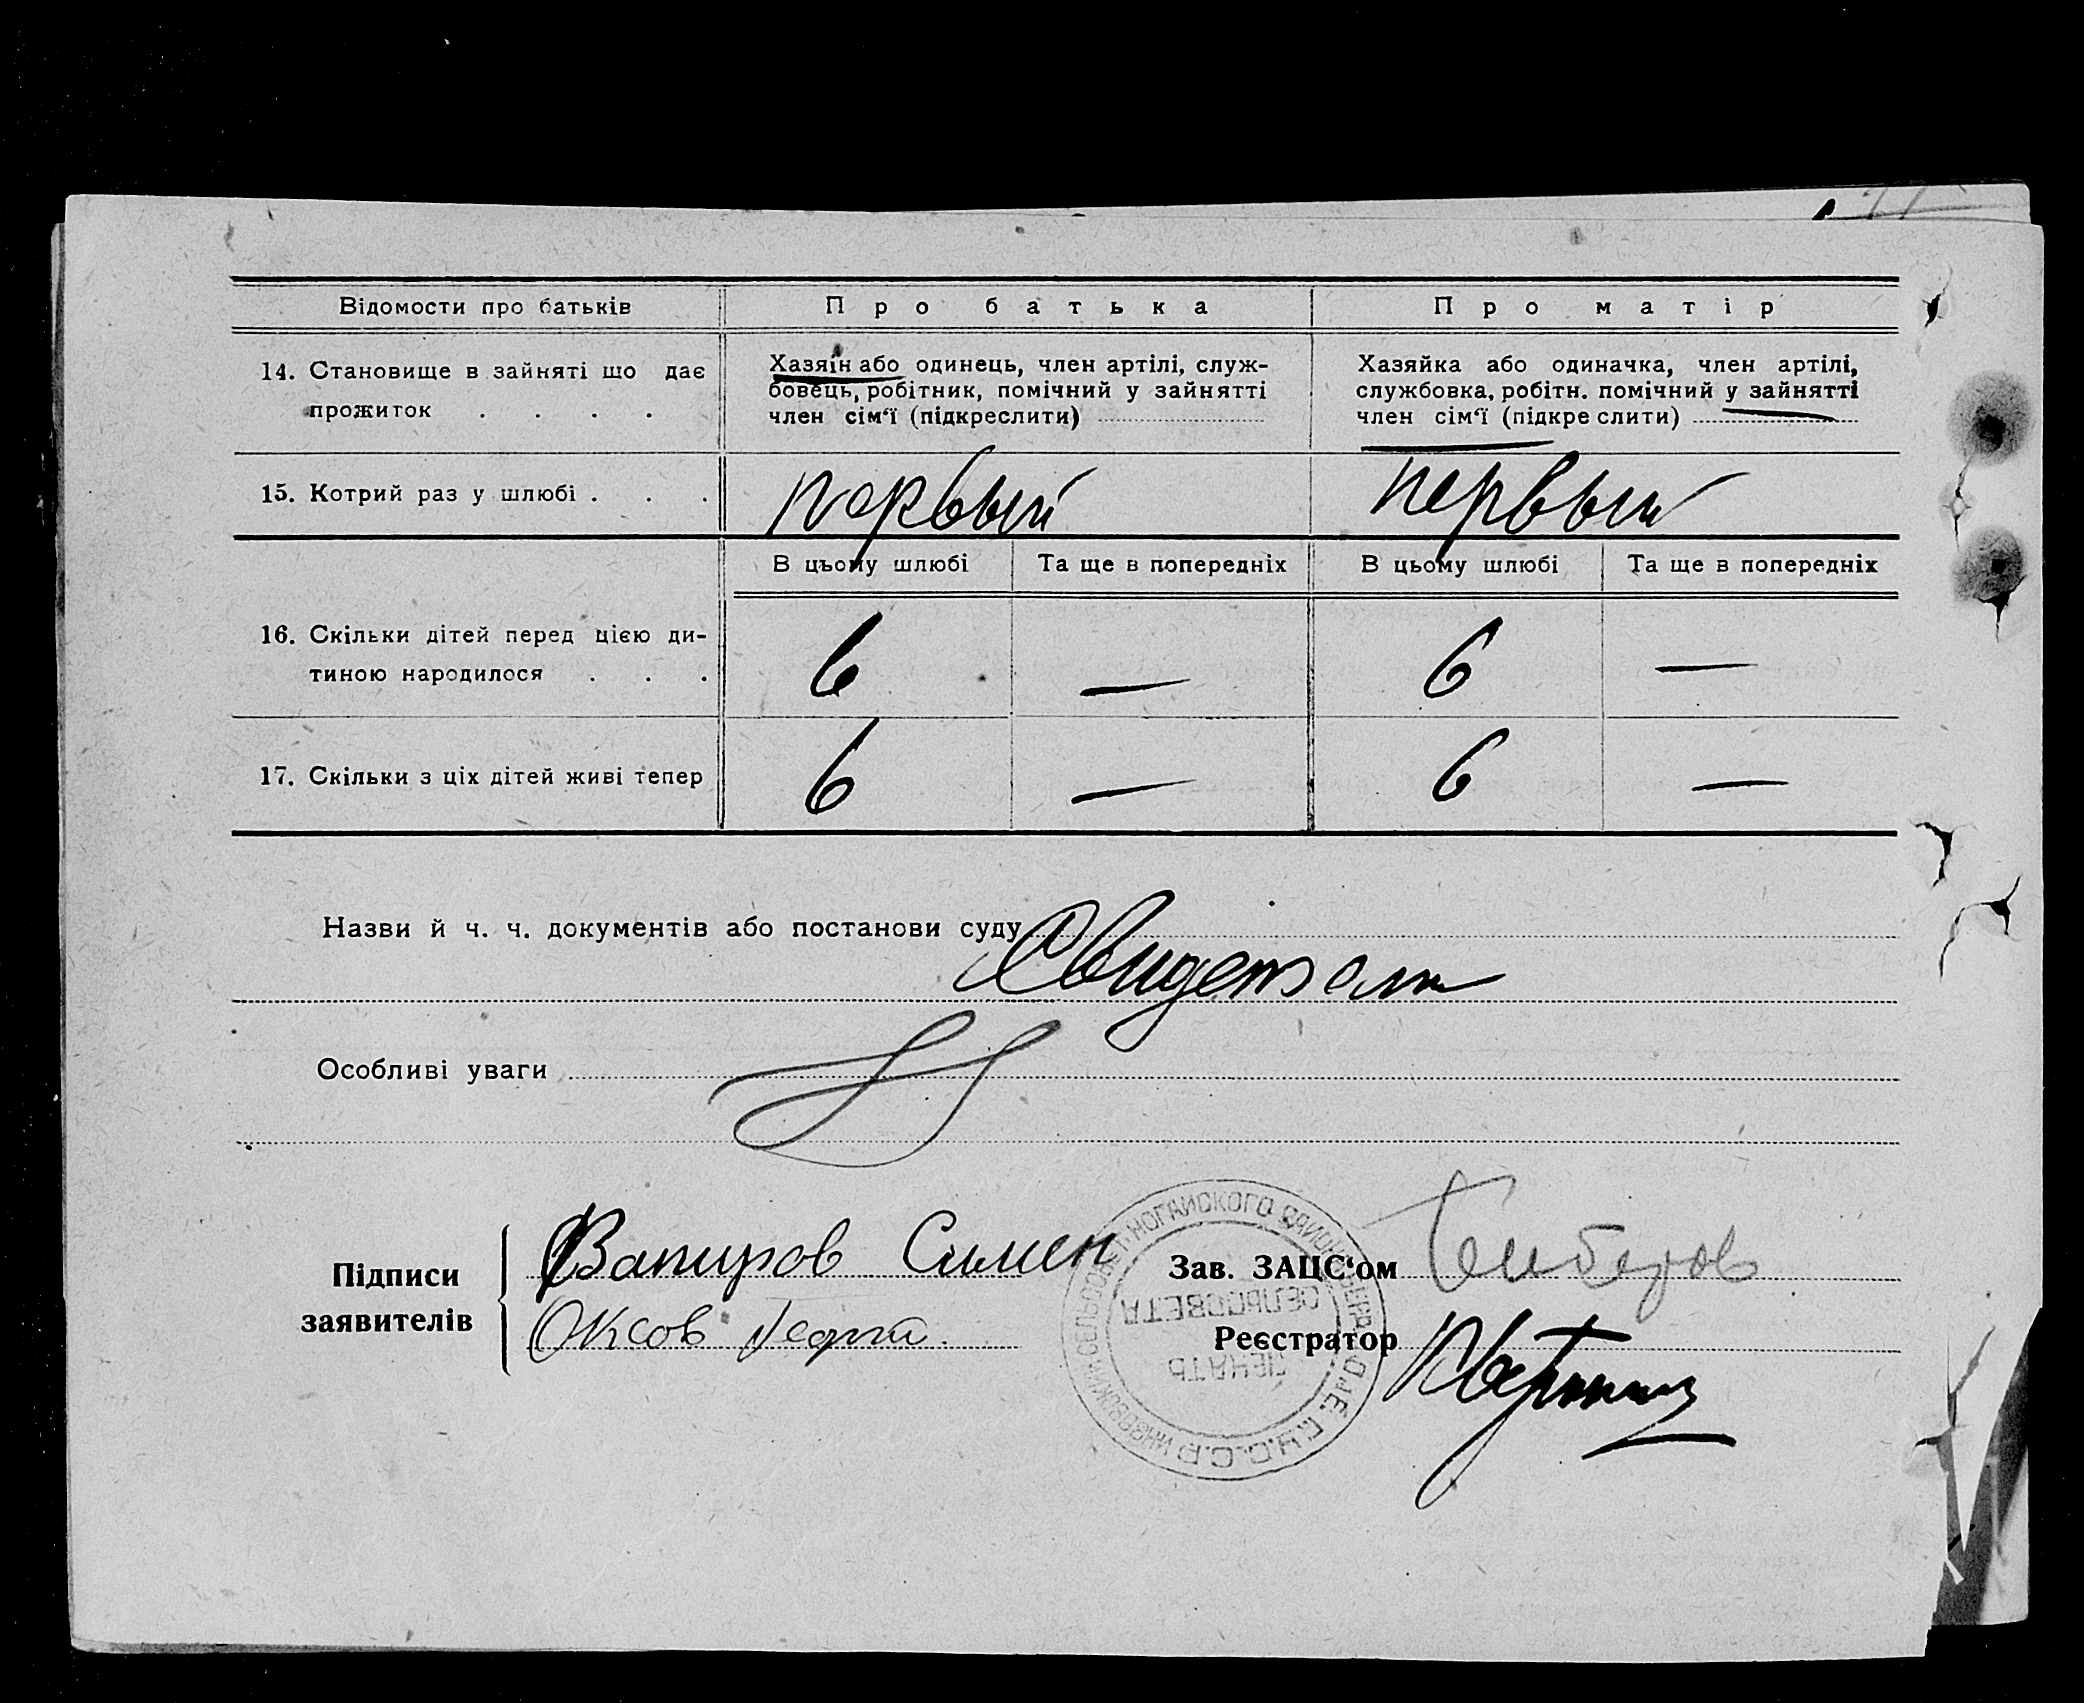 Відомости про батьків
Про батька
Про матір
14. Становище в зайняті що дає
прожиток . . . .
Хазяїн або одинець, член артілі, служ-
бовець, робітник, помічний у зайнятті
член сім‘ї (підкреслити)
Хазяйка або одиначка, член артілі,
службовка, робітн. помічний у зайнятті
член сім‘ї (підкреслити)
15. Котрий раз у шлюбі . . .
первый
первый
В цьому шлюбі
Та ще в попередніх
В цьому шлюбі
Та ще в попередніх
16. Скільки дітей перед цією ди-
тиною народилося . . .
6
—
6
—
17. Скільки з ціх дітей живі тепер
6
—
6
—
Назви й ч. ч. документів або постанови суду
Свидетели
Особливі уваги
Підписи
заявителів
Вапиров Симен
Оксов
Зав. ЗАЦС‘ом
Реєстратор
НОГАЙСКОГО
СЕЛЬСОВЕТА
ПЕЧАТЬ
У.С.С.Р.